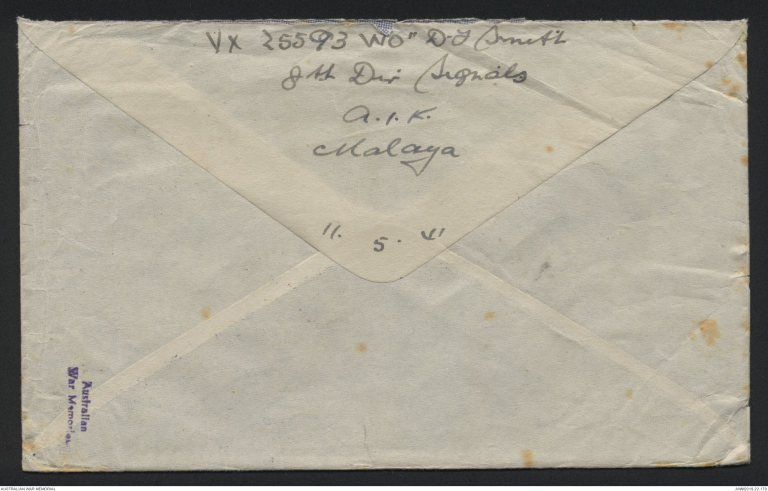 VX 25593 WO" D.J Smith
8th Div Signals
A.I.F.
Malaya
11. 5. 41
Australian
War Memorial
AUSTRALIAN WAR MEMORIAL